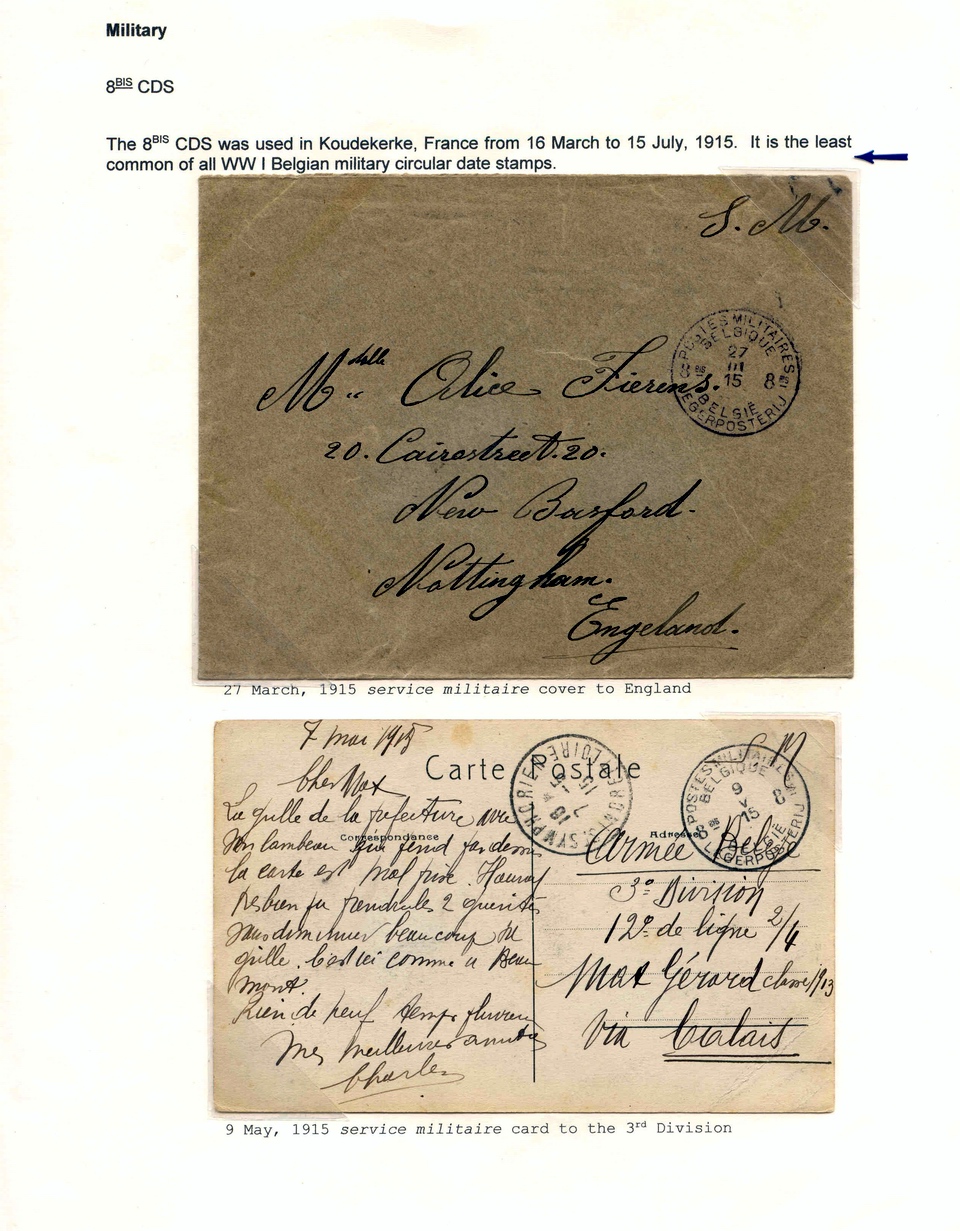 Military
8BIS CDS
The 8BIS CDS was used in Koudekerke, France from 16 March to 15 July, 1915.  It is the least
common of all WW I Belgian military circular date stamps.
S. M.
Mdelle Alice Fierens.
20. Cairostreet. 20.
New Basford.
Nottingham.
Engeland.
POSTES MILITAIRES
BELGIQUE
27
III
15
8BIS 8BIS
BELGIË
LEGERPOSTERIJ
27 March, 1915 service militaire cover to England
7 mai 1915
Carte Postale
S M
Cher Max
La grille de la préfecture avec
son lambeau qui pend par dessus
la carte est mal prise. Il aurait
très bien pu prendre les 2 guérites
sans diminuer beaucoup la
grille. C'est ici comme à Beau
mont.
Rien de neuf temps pluvieux
Mes meilleures amitiés
Charles
Correspondance
Adresse
ST SYMPHORIEN
7 -5 15
POSTES MILITAIRES
BELGIQUE
9
V
15
8BIS 8
BELGIË
LEGERPOSTERIJ
Armée Belge
3e Division
12e de ligne 2/4
Max Gérard classe 1913
Via Calais
9 May, 1915 service militaire card to the 3rd Division